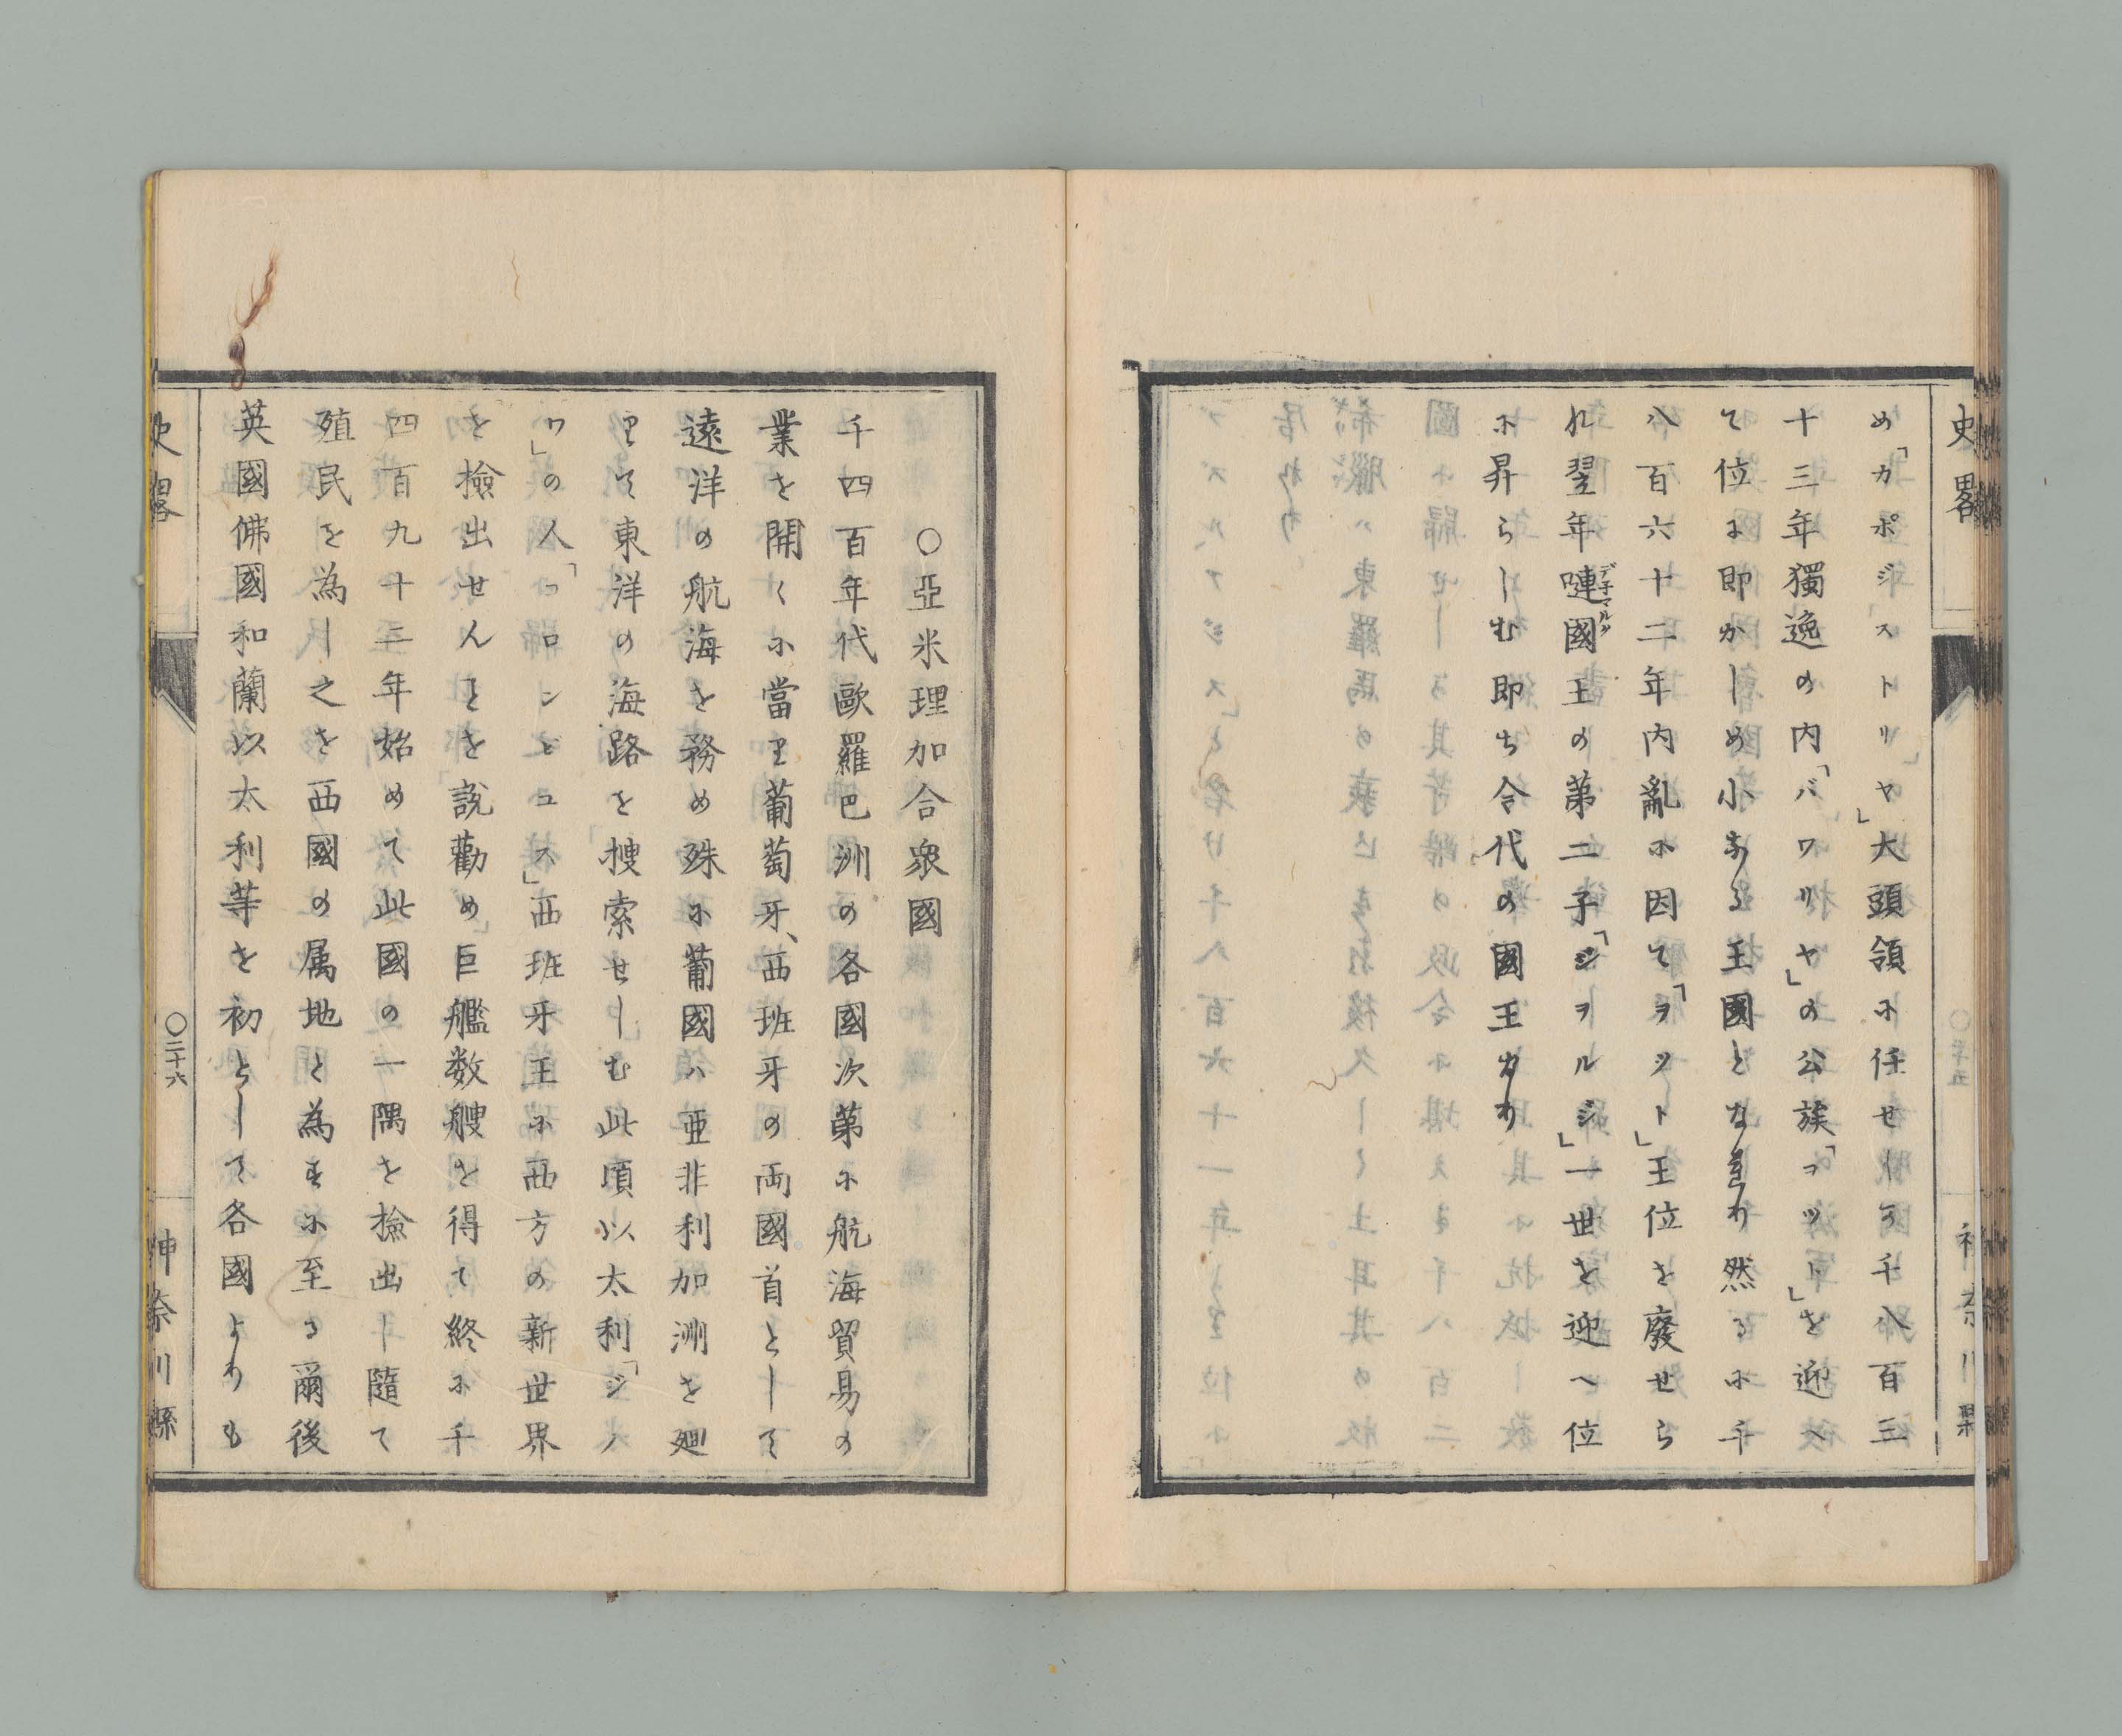 史畧
神奈川縣
め「カポジストリヤ」大頭領に任せしう千八百三
十三年獨逸の内「バワリヤ」の公族「ヲットー」を迎へ
て位よ即かしめ小なる王國となせり然るに千
八百六十二年内亂に因て「ヲット」王位を廢せら
れ翌年嗹國王の第二子「ジヲルジ」一世を迎へ位
デ子マルク
に昇らしむ即ち今代の國王なり
○亞米理加合衆國
千四百年代歐羅巴洲の各國次第に航海貿易の
業を開くに當り葡萄牙、西班牙の両國首として
遠洋の航海を務め殊に葡國ハ亞非利加洲を廻
りて東洋の海路を搜索せしむ此頃以太利「ジノ
ワ」の人「コロンビュス」西班牙王に西方の新世界
を撿出せんとを説勸め巨艦数艘を得て終に千
四百九十三年始めて此國の一隅を撿出し隨て
殖民を為し之を西國の属地と為すに至る爾後
英國佛國和蘭以太利等を初として各國よりも
史畧
○二十六
神奈川縣